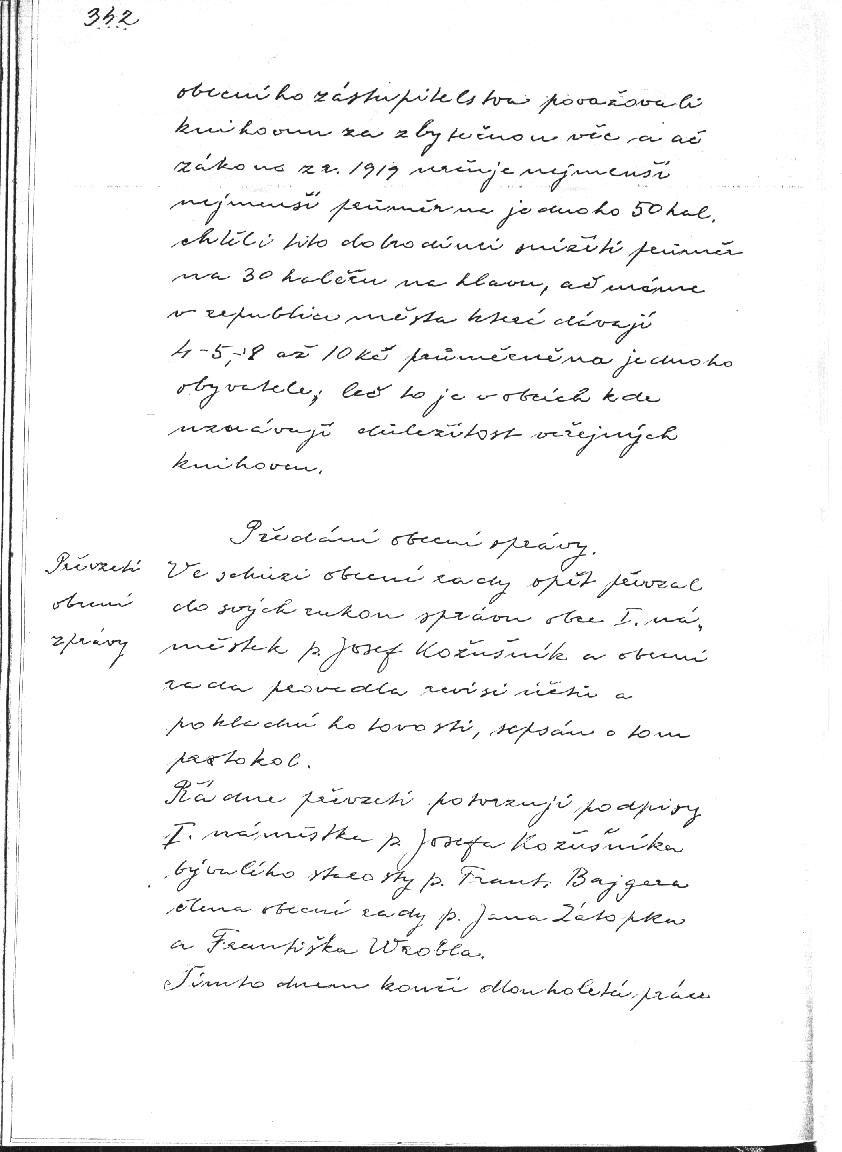 342
obecního zástupitelstva považovali
knihovnu za zbytečnou věc a ač
zákona z r. 1919 určuje nejmenší
nejmenší průměr na jednoho 50 hal.
chtěli tito dobrodinci snížiti průměr
na 30 haléřů na hlavu, ač máme
v republice města které dávají
4-5,-8 až 10 kč průměrně na jednoho
obyvatele, leč to je v obcích kde
uznávají důležitost veřejných
knihoven.
Předání obecní správy.
Převzetí
obecní
zprávy
Ve schůzi obecní rady opět převzal
do svých rukou správu obce I. ná-
městek p. Josef Kožušník a obecní
rada provedla revisi účtů a
pokladní hotovosti, sepsán o tom
protokol.
Řádne převzetí potvrzují podpisy
I. náměstka p. Josefa Kožušníka
bývalého starosty p. Frant. Bajgera
člena obecní rady p. Jana Zátopka
a Františka Wrobla.
Tímto dnem končí dlouholetá práce